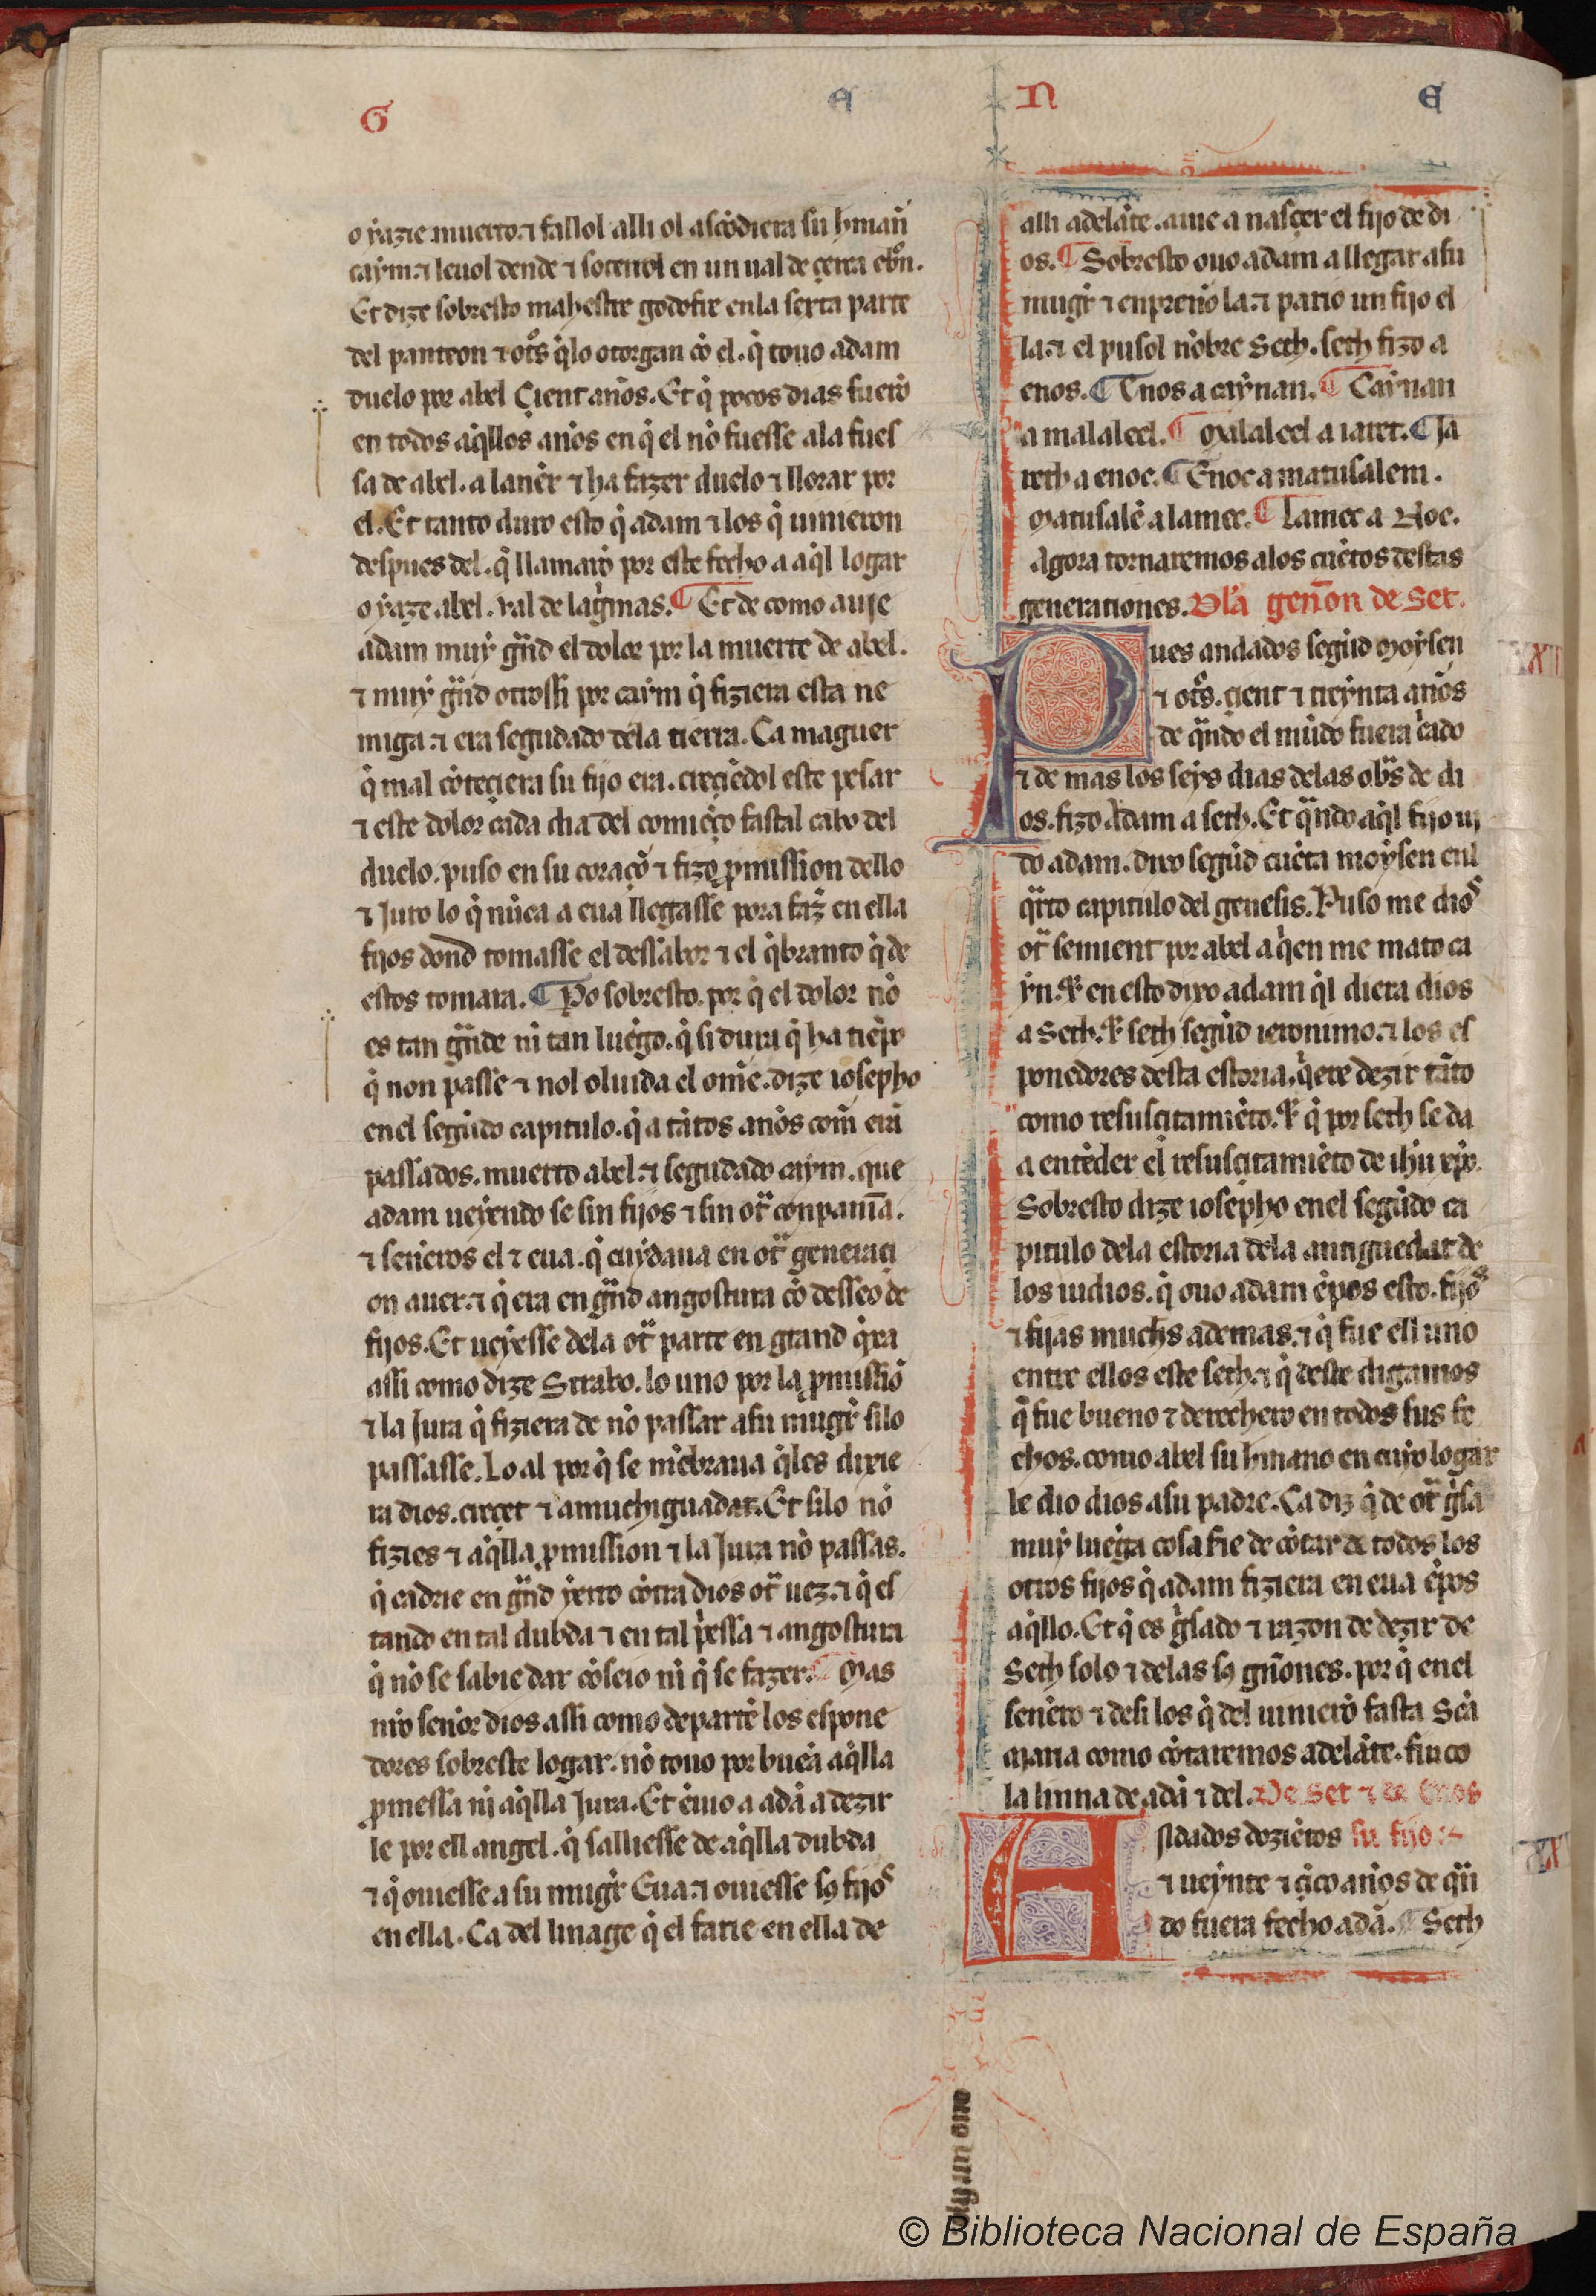 G E N E
o yazie muerto. ⁊ fallol alli ol ascõdiera su hmañ
caym. ⁊ leuol dende ⁊ soterrol en un ual de çerca ebrõn.
Et dize sobresto mahestre godofre en la sexta parte
del panteon ⁊ otͦs q̇lo otorgan cõ el. q̇ touo adam
duelo por abel Çient anõs. Et q̇ pocos dias fuerõ
en todos aq̇llos anõs en q̇ el nõ fuesse a la fues
sa de abel. a lanẽr ⁊ ha fazer duelo ⁊ llorar por
el. Et tanto duro esto q̇ adam ⁊ los q̇ uinieron
despues del. q̇ llamarõ por este fecho a aq̇l logar
o yaze abel. val de lagͥmas. ¶ Et de como auje
adam muy gñd el dolor por la muerte de abel.
⁊ muy gñd otrossi por caym q̇ fiziera esta ne
miga. ⁊ era segudado dela tierra. Ca maguer
q̇ mal cõteçiera su fijo era. creçiẽdol este pesar
⁊ este dolor cada dia del comiẽço fastal cabo del
duelo. puso en su coraçõ ⁊ fizo ꝓmission dello
⁊ Juro lo q̇ nũca a eua llegasse pora faz̃ en ella
fijos dond tomasse el dessabor ⁊ el q̇branto q̇ de
estos tomara. ¶ Po sobresto. por q̇ el dolor nõ
es tan gñde ni tan luẽgo. q̇ si dura q̇ ha tiẽpo
q̇ non passe ⁊ nol oluida el omẽ. dize iosepho
en el segũdo capitulo. q̇ a tãtos anõs com̃ erã
passados. muerto abel. ⁊ segudado caym. que
adam ueyendo se sin fijos ⁊ sin otͣ conpanĩa.
⁊ señeros el ⁊ eua. q̇ cuydaua en otͣ generaçi
on auer. ⁊ q̇ era en gñd angostura cõ desseo de
fijos. Et ueyesse dela otͣ parte en grand q̇xa
assi como dize Strabo. lo uno por la ꝓmissiõ
⁊ la Jura q̇ fiziera de nõ passar a su mugͬ si lo
passasse. Lo al por q̇ se mẽbraua q̇les dixie
ra dios. creçet ⁊ amuchiguadat. Et si lo nõ
fizies ⁊ aq̇lla ꝓmission ⁊ la Jura nõ passas.
q̇ cadrie en gñd yerro cõtra dios otͣ uez. ⁊ q̇ es
tando en tal dubda ⁊ en tal pͥessa ⁊ angostura
q̇ nõ se sabie dar cõseio ni q̇ se fazer. ¶ Mas
nr̃o senõr dios assi como departẽ los espone
dores sobreste logar. nõ touo por buẽa aq̇lla
ꝓmessa nj aq̇lla Jura. Et ẽuio a adã a dezir
le por ell angel. q̇ salliesse de aq̇lla dubda
⁊ q̇ ouiesse a su mugͬ Eua. ⁊ ouiesse sꝯ fijoˢ
en ella. Ca del linage q̇ el farie en ella de
alli adelãte. auie a nasçer el fijo de di
os. ¶ Sobresto ouo adam a llegar a su
mugͬ ⁊ enprenõ la. ⁊ pario un fijo el
la. ⁊ el pusol nõbre Seth. seth fizo a
enos. ¶ Enos a caynan. ¶ Caynan
a malaleel. ¶ Malaleel a iaret. ¶ Ja
reth a enoc. ¶ Enoc a matusalem.
Matusalẽ a lamec. ¶ Lamec a Noe.
Agora tornaremos a los cuẽtos destas
generationes. Dla geñon de Set.
Pues andados segũd Moysen
⁊ otͦs. çient ⁊ treynta anõs
de qͣndo el mũdo fuera cͥado
⁊ de mas los seys dias delas obͣs de di
os. fizo Adam a seth. Et qͣndo aq̇l fijo ui
do adam. dixo segũd cuẽta moysen enl
qͣrto capitulo del genesis. Puso me dioˢ
otͣ semient por abel a q̇en me mato ca
yn. ⁊ en esto dixo adam q̇l diera dios
a Seth. ⁊ seth segũd ieronimo. ⁊ los es
ponedores desta estoria. q̇ere dezir tãto
como resusçitamiẽto. ⁊ q̇ por seth se da
a entẽder el resusçitamiẽto de ihũ xp̃o.
Sobresto dize iosepho en el segũdo ca
pitulo dela estoria dela antiguedat de
los iudios. q̇ ouo adam ẽpos esto. fijoˢ
⁊ fijas muchˢ ademas. ⁊ q̇ fue ell uno
entre ellos este seth. ⁊ q̇ deste digamos
q̇ fue bueno ⁊ derechero en todos sus fe
chos. como abel su hmano en cuyo logar
le dio dios a su padre. Ca diz q̇ de otͣ gͥsa
muy luẽga cosa sie de cõtar de todos los
otros fijos q̇ adam fiziera en eua ẽpos
aq̇llo. Et q̇ es gͥsado ⁊ razon de dezir de
Seth solo ⁊ delas sꝯ gñones. por q̇ en el
senẽro ⁊ desi los q̇ del uinierõ fasta Scã
Maria como cõtaremos adelãte. finco
la linna de adã ⁊ del. De Set ⁊ de Enos
Andados doziẽtos su fijo
⁊ ueynte ⁊ çĩco anõs de qͣn
do fuera fecho adã. ¶ Seth
ouo un fijo
© Biblioteca Nacional de España